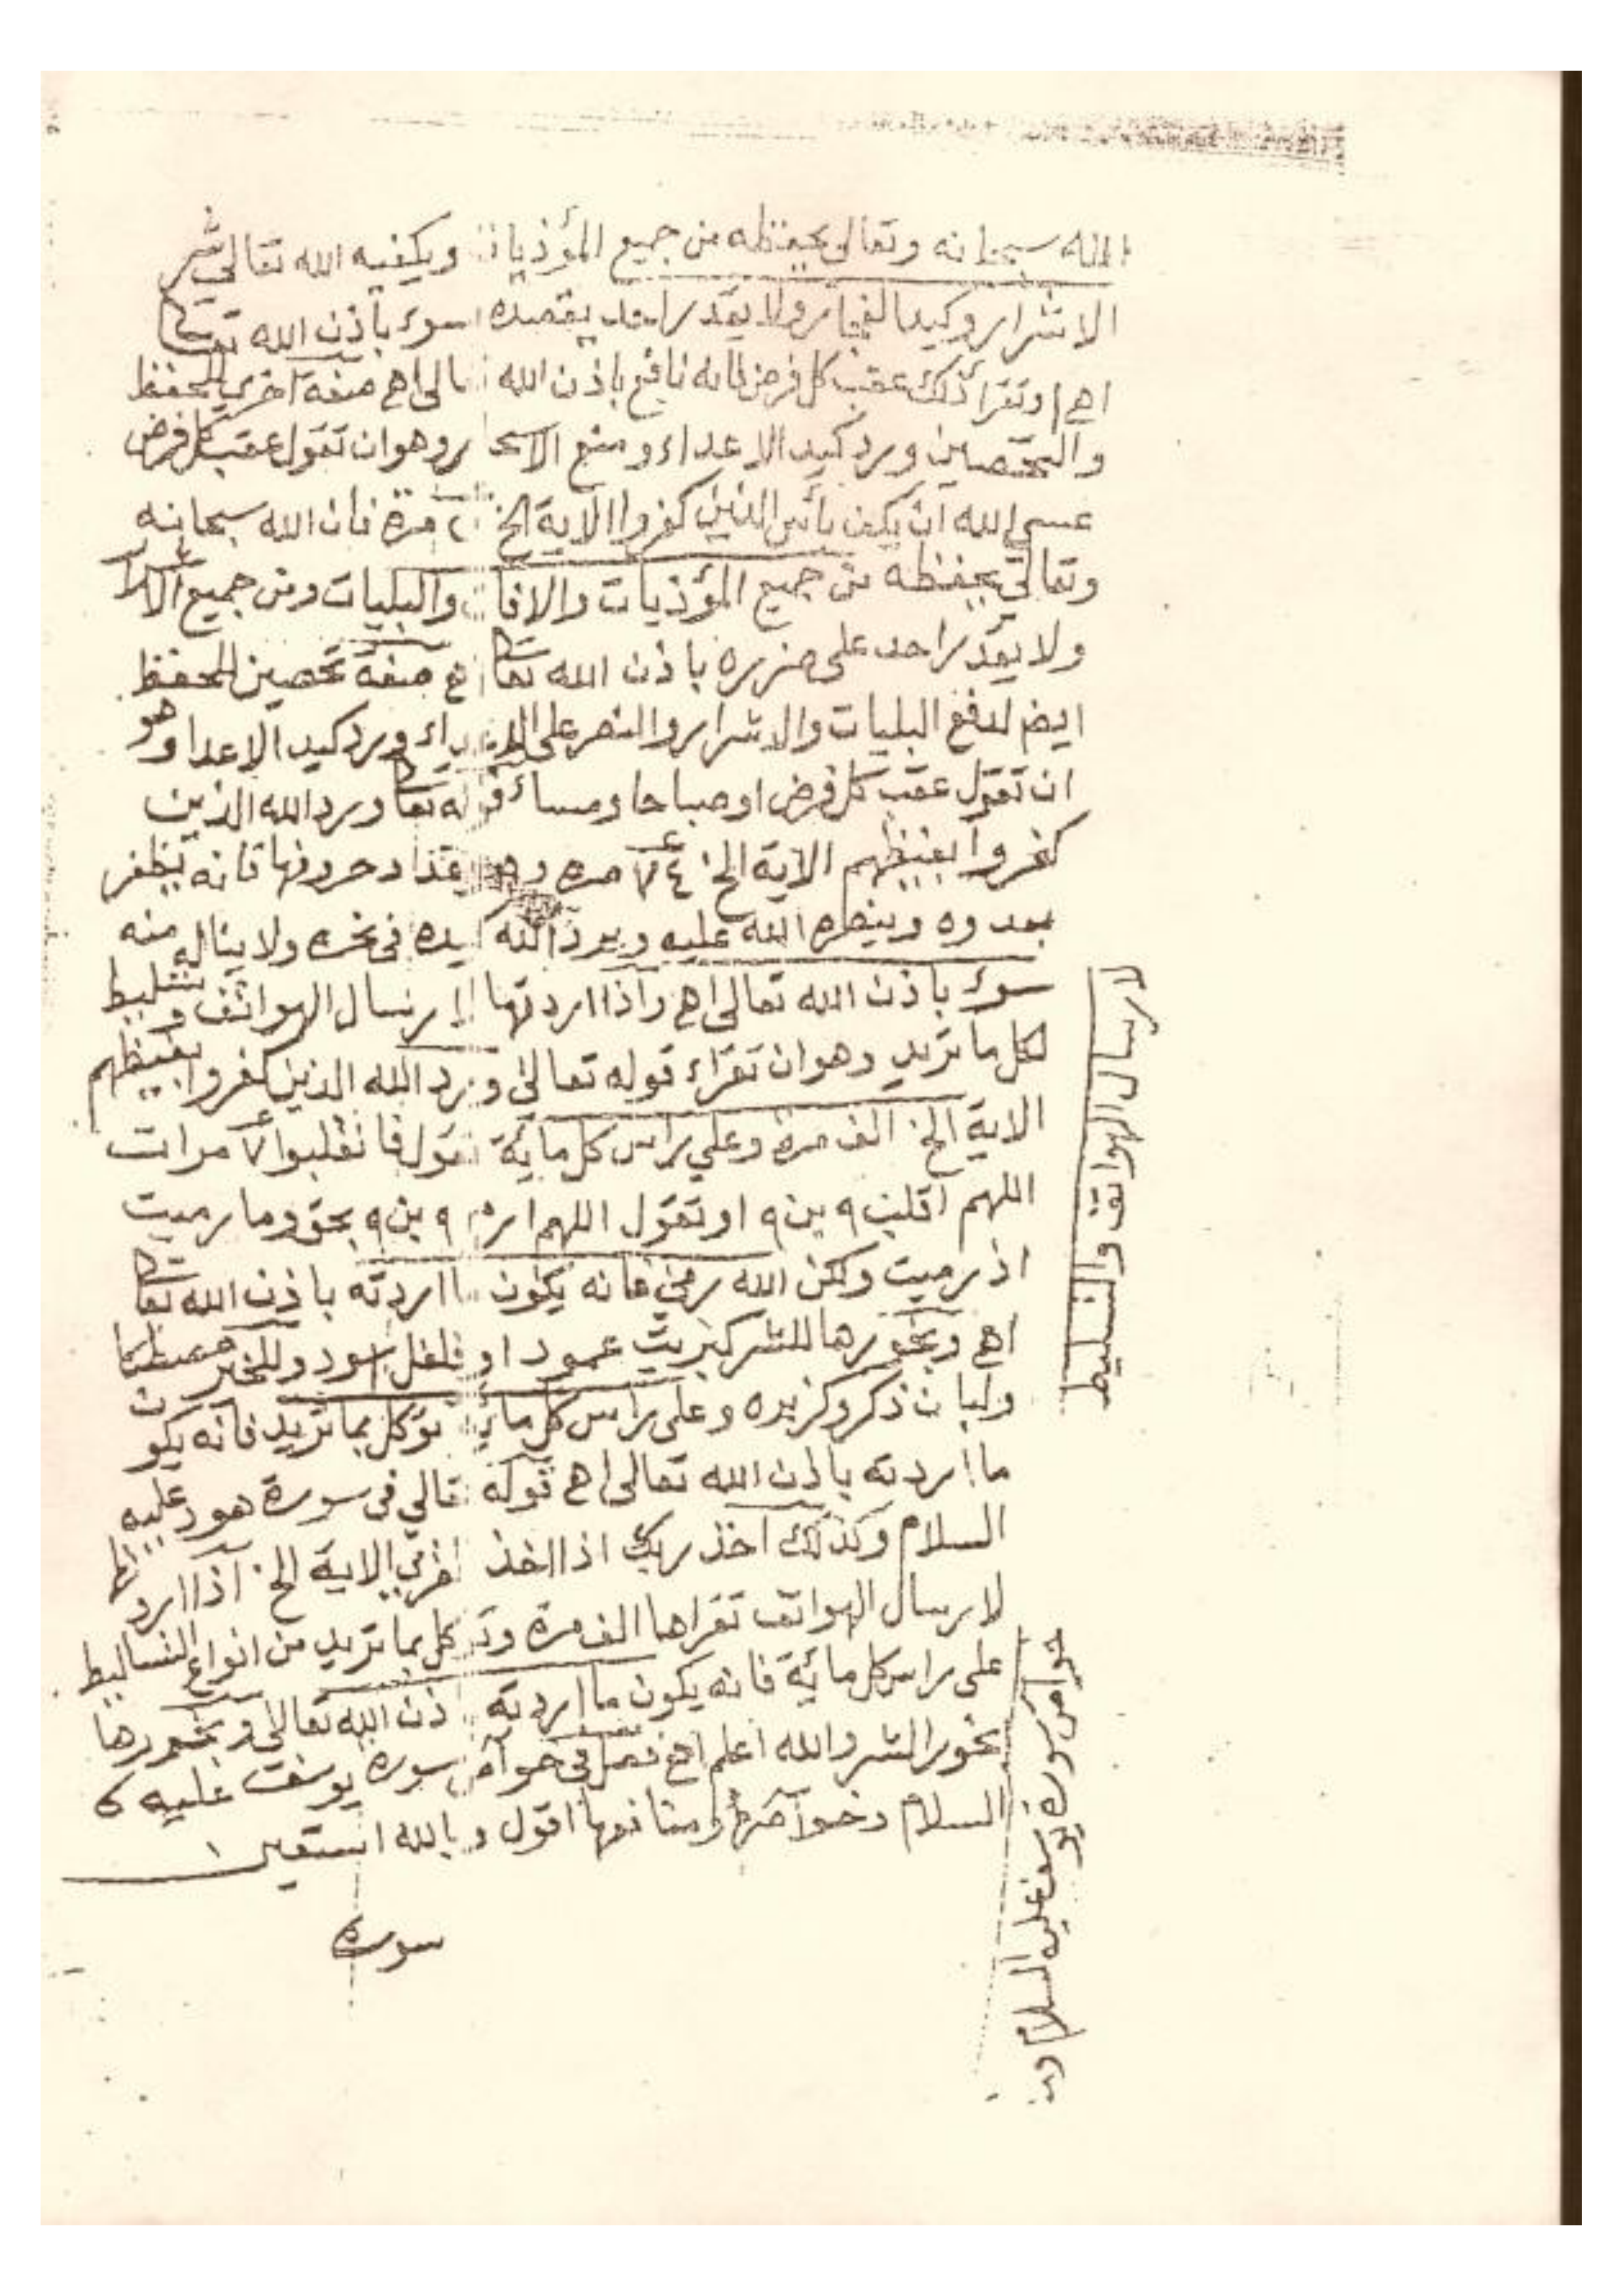 الله سبحانه وتعالى يحفظه من جميع المؤذيات ويكفيه الله تعالى شر
الاشرار وكيد الفجار ولا يقدر احد يقصده بسوء باذن الله تعالى
اهـ او تقرأ ذلك عقب كل فرض فانه نافع باذن الله تعالى اهـ صفة اخري للحفظ
والتحصين ورد كيد الاعداء ومنع الاسحار وهو ان تقول عقب كل فرض
عسي الله ان يكف بأس الذين كفروا الاية الخ مرة فان الله سبحانه
وتعالي يحفظه من جميع المؤذيات والافات والبليات ومن جميع
ولا يقدر احد على ضرره باذن الله تعالى اهـ صفة تحصين للحفظ
ايضم لدفع البليات والاشرار والنصر على الاعداء ورد كيد الاعدا وهو
ان تقول عقب كل فرض او صباحا ومساء قوله تعالى ورد الله الذين
كفروا بغيظهم الاية الخ مره وهو مقدا د حروفها فانه يظفر
بعدوه وينصره الله عليه ويرد الله كيده فى نحره ولا يناله منه
سوء باذن الله تعالى اهـ واذا اردتها لارسال الهواتف وتسليط
لكل ما تريد وهو ان تقراء قوله تعالى ورد الله الذين كفروا بغيظهم
الاية الخ الف مرة وعلي راس كل مائة تقول فانقلبوا ٧ مرات
اللهم اقلب ٩ بن ٩ او تقول اللهم ارم ٩ بن ٩ بحق وما رميت
اذ رميت ولكن الله رمي فانه يكون ما اردته باذن الله تعالى
اهـ وبخورها للشر كبريت عمود او فلفل اسود وللخير مصطكا
ولبان ذكر وكزبره وعلى راس كل مائة توكل بما تريد فانه يكون
ما اردته باذن الله تعالى اهـ قوله تعالي فى سورة هود عليه
السلام وكذلك اخذ ربك اذا اخذ القري الاية الخ اذا اردتها
لارسال الهواتف تقراها الف مرة وتوكل بما تريد من انواع التساليط
على راس كل مائة فانه يكون ما اردته باذن الله تعالى وبخورها
بخور الشر والله اعلم اهـ فصل فى خواص سورة يوسف عليه
السلام وخواصها ومنافعها اقول وبالله استعين
سورة
لارسال الهواتف والتسليط
خواص سورة يوسف عليه السلام